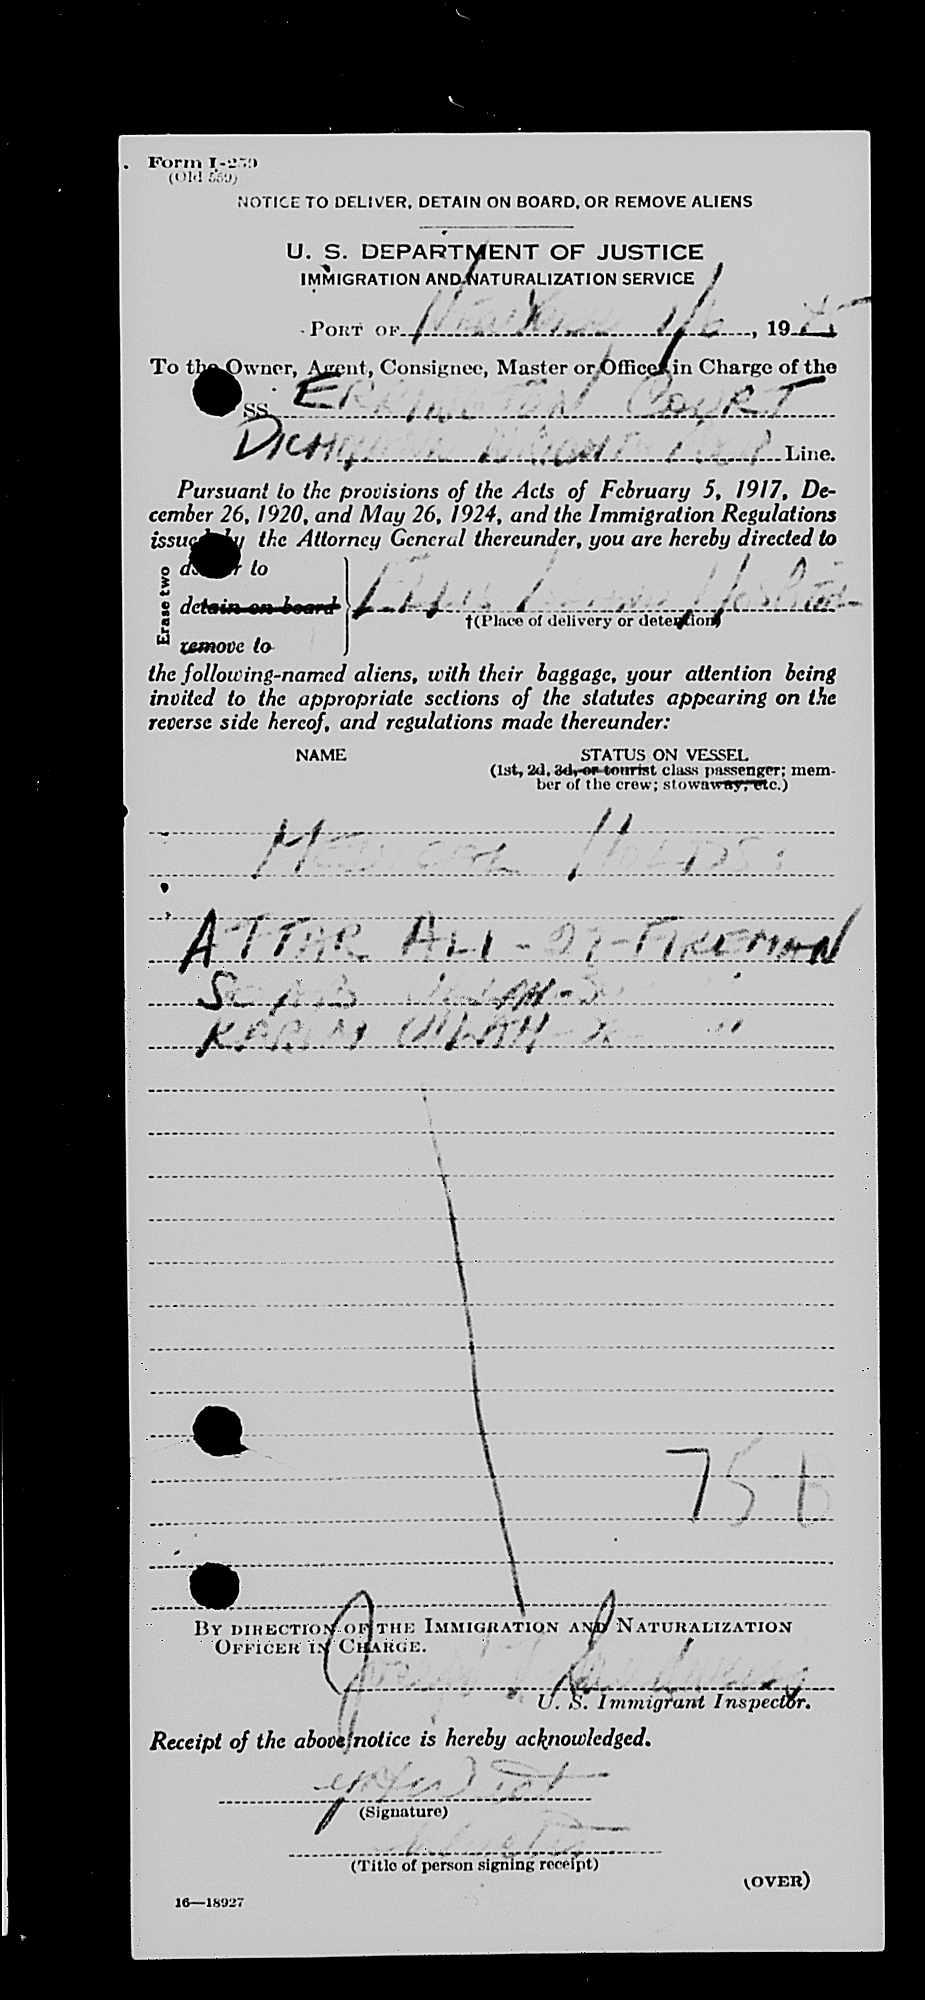 Form I-259
(Old 559)
NOTICE TO DELIVER, DETAIN ON BOARD, OR REMOVE ALIENS
U. S. DEPARTMENT OF JUSTICE
IMMIGRATION AND NATURALIZATION SERVICE
PORT OF New York 1/6, 1945
To the Owner, Agent, Consignee, Master or Officer in Charge of the
SS. ERRINGTON COURT
Line.
Pursuant to the provisions of the Acts of February 5, 1917, De-
cember 26, 1920, and May 26, 1924, and the Immigration Regulations
issued by the Attorney General thereunder, you are hereby directed to
Erase two
deliver to
detain on board
remove to
Ellis Island Hospital
†(Place of delivery or detention)
the following-named aliens, with their baggage, your attention being
invited to the appropriate sections of the statutes appearing on the
reverse side hereof, and regulations made thereunder:
NAME STATUS ON VESSEL
(1st, 2d, 3d, or tourist class passenger; mem-
ber of the crew; stowaway, etc.)
MEDICAL HOLDS:
ATTAR ALI - 27 - FIREMAN
ULLAH - "
KARIM ULLAH - "
75 B
BY DIRECTION OF THE IMMIGRATION AND NATURALIZATION
OFFICER IN CHARGE.
Joseph
U. S. Immigrant Inspector.
Receipt of the above notice is hereby acknowledged.
(Signature)
(Title of person signing receipt)
(OVER)
16—18927